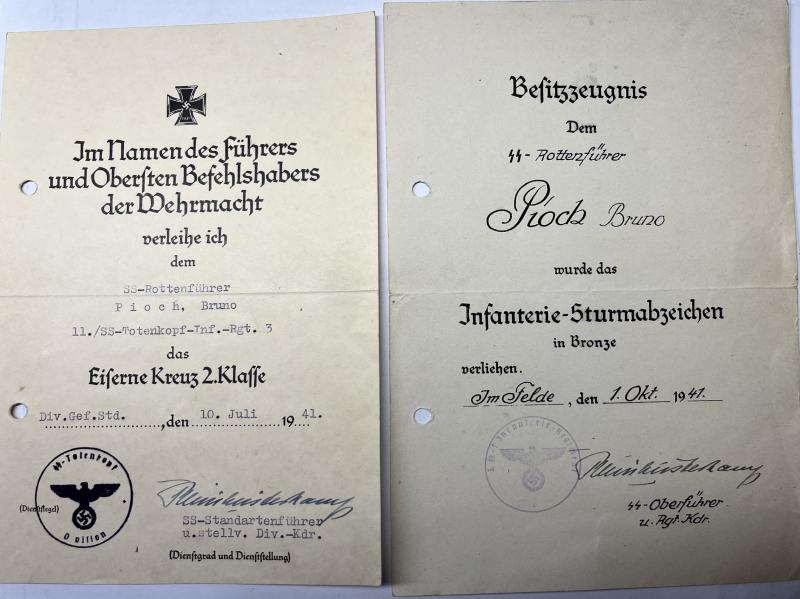 Im Namen des Führers
und Obersten Befehlshabers
der Wehrmacht
verleihe ich
dem
SS-Rottenführer
Pioch, Bruno
11./SS-Totenkopf-Inf.-Rgt. 3
das
Eiserne Kreuz 2. Klasse
Div.Gef.Std. , den 10. Juli 19 41.
SS-Totenkopf
Division
(Dienstsiegel)
SS-Standartenführer
u.stellv. Div.-Kdr.
(Dienstgrad und Dienststellung)
Besitzzeugnis
Dem
SS-Rottenführer
Pioch Bruno
wurde das
Infanterie-Sturmabzeichen
in Bronze
verliehen.
Im Felde , den 1. Okt. 1941.
SS-Oberführer
u. Rgt. Kdr.